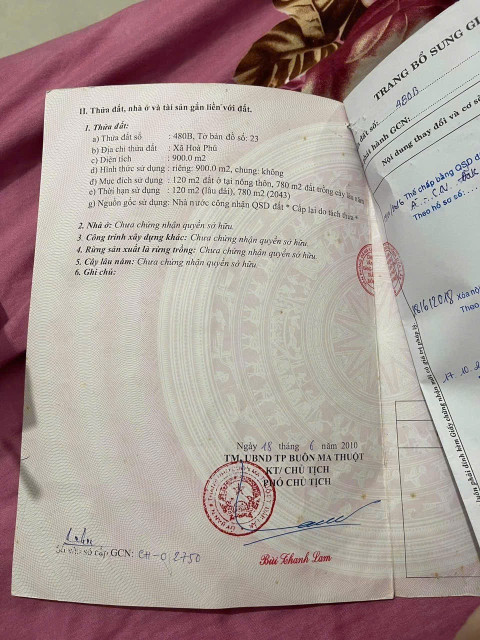 II. Thửa đất, nhà ở và tài sản gắn liền với đất.
1. Thửa đất:
a) Thửa đất số : 480B, Tờ bản đồ số: 23
b) Địa chỉ thửa đất : Xã Hoà Phú
c) Diện tích : 900.0 m2
d) Hình thức sử dụng : riêng: 900.0 m2, chung: không
đ) Mục đích sử dụng : 120 m2 đất ở tại nông thôn, 780 m2 đất trồng cây lâu năm
e) Thời hạn sử dụng : 120 m2 (lâu dài), 780 m2 (2043)
g) Nguồn gốc sử dụng: Nhà nước công nhận QSD đất * Cấp lại do tách thửa *
2. Nhà ở: Chưa chứng nhận quyền sở hữu.
3. Công trình xây dựng khác: Chưa chứng nhận quyền sở hữu.
4. Rừng sản xuất là rừng trồng: Chưa chứng nhận quyền sở hữu.
5. Cây lâu năm: Chưa chứng nhận quyền sở hữu.
6. Ghi chú:
Ngày 18 tháng 6 năm 2010
TM. UBND TP BUÔN MA THUỘT
KT/ CHỦ TỊCH
PHÓ CHỦ TỊCH
Bùi Thanh Lam
Số vào sổ cấp GCN: CH-02750
TRANG BỔ SUNG GI
đất số: 480B
hát hành GCN:
Nội dung thay đổi và cơ sở
Thế chấp bằng QSD đ
Theo hồ sơ số:
18/6/2018 Xóa nộ
Theo
17. 10. 2